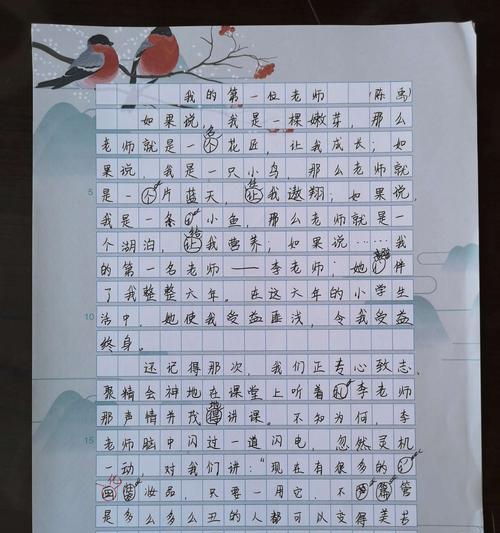 我的第一位老师 (陈禹)
如果说，我是一棵嫩芽，那么
老师就是一个名花匠，让我成长；如
果说，我是一只小鸟，那么老师就
5 是一个片蓝天，让我遨翔；如果说，
我是一条小鱼，那么老师就是一
个湖泊，让给我营养；如果说……我
的第一名老师——李老师；她伴
了我整整六年。在这六年的小学生
10 活中，她使我受益匪浅，令我受益
终身。
还记得那次，我们正专心致志、
聚精会神地在课堂上听着李老师
那声情并茂得地讲课。不知为何，李
15 老师脑中闪过一道闪电，忽然灵机
一动，对我们讲："现在有很多的
化妆品，只要一用它，不管
是多么多么丑的人都可以变得美若